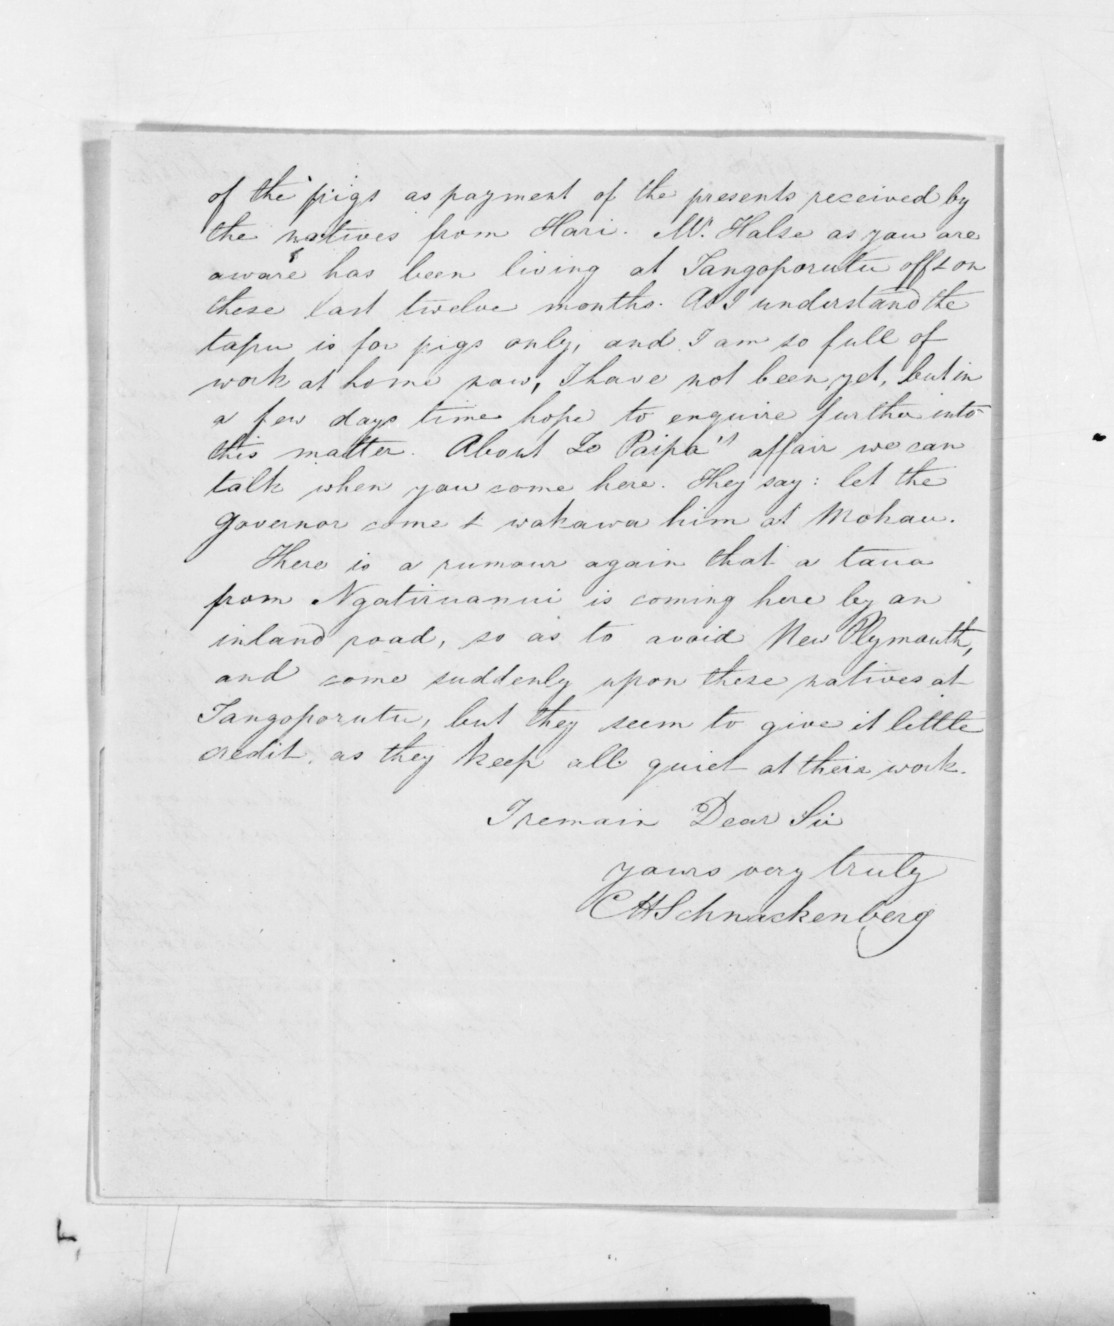 of the pigs as payment of the presents received by
the natives from Hari. Mr. Halse as you are
aware has been living at Tangoporutu off & on
these last twelve months. As I understand the
tapu is for pigs only, and I am so full of
work at home now, I have not been yet, but in
a few days time hope to enquire further into
this matter. About Te Paipa's affair we can
talk when you come here. They say: let the
Governor come & wakawa him at Mokau.
There is a rumour again that a taua
from Ngatiruanui is coming here by an
inland road, so as to avoid New Plymouth,
and come suddenly upon these natives at
Tangoporutu, but they seem to give it little
credit, as they keep all quiet at their work.
I remain Dear Sir
yours very truly
CHSchnackenberg